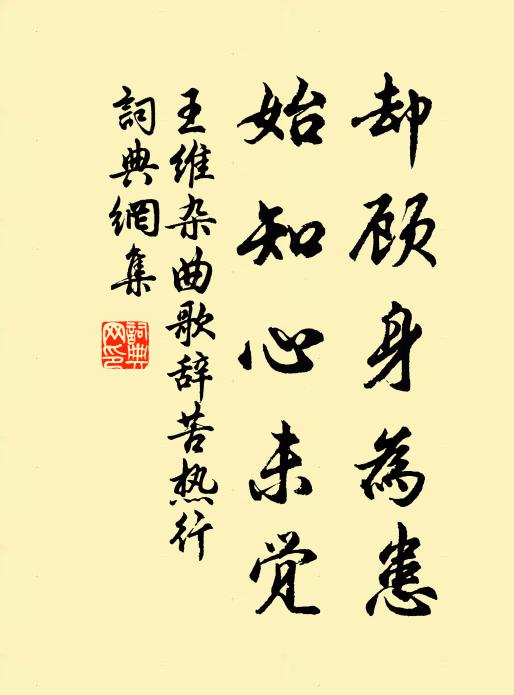 却顾身為患
始知心未觉
王维杂曲歌辞苦热行
詞典網集
詞典
網印